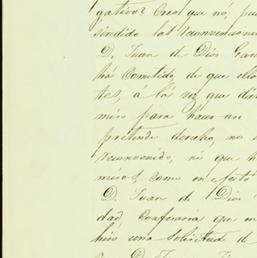 gativo? Creo que nó, pues
sindido las reconvenciones
D. Juan de Dios Gar
há cometido, de que ello
tes, á la vez que di
mero para hacer
pretende derecho, no e
reconvenido, ni que h
mi
como en efecto
D. Juan de Dios
dad, Confesaria que
hizo una solicitud de